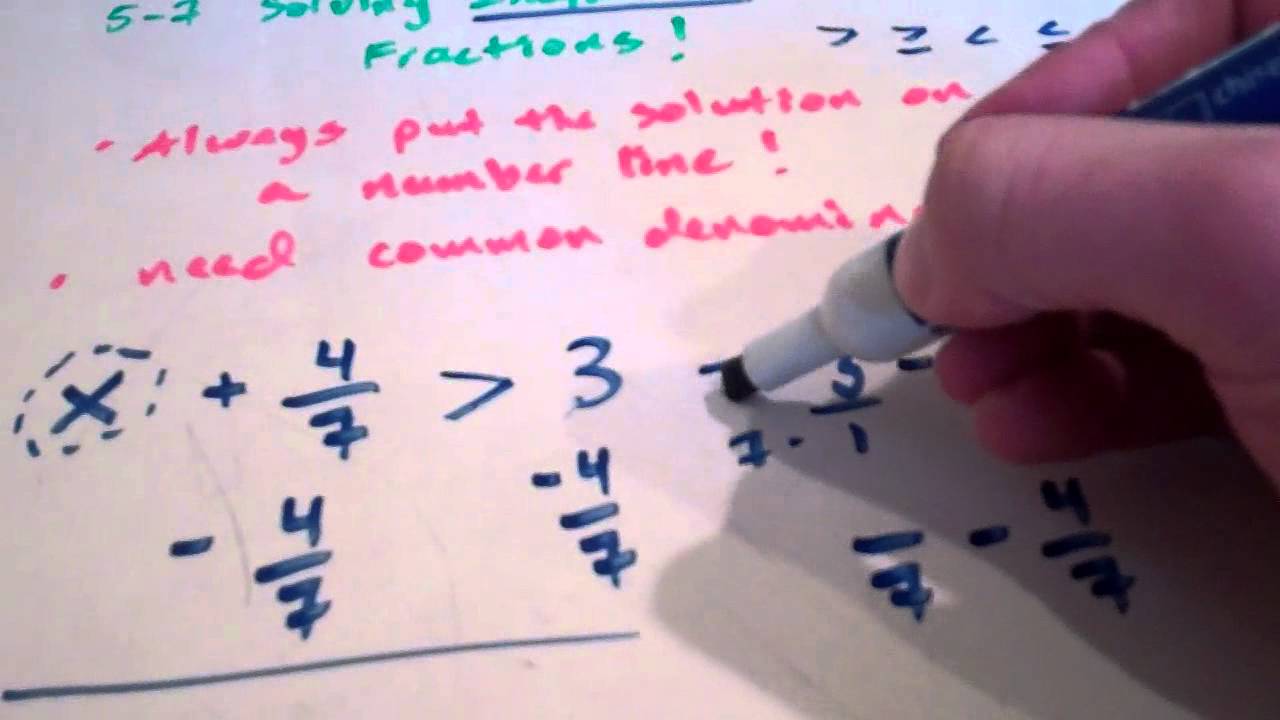 5-7 Solving
Fractions!
> ≥ < ≤
• Always put the solution on
a number line!
• need common
x + 4/7 > 3
- 4/7 - 4/7
7 · 3/1 -
/7 - 4/7